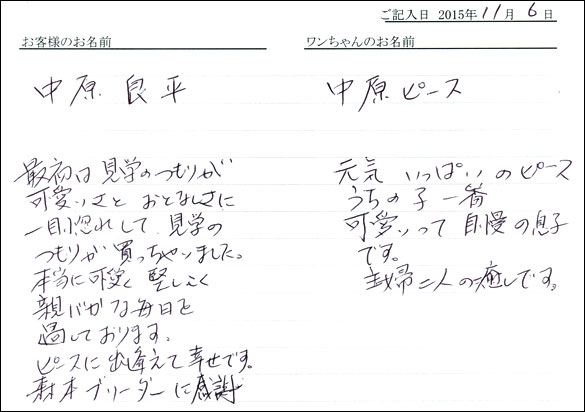 ご記入日 2015年 11月 6日
お客様のお名前
中原 良平
最初は見学のつもりが
可愛いさと おとなしさに
一目惚れして 見学の
つもりが 買っちゃいました。
本当に可愛く 賢しく
親バカな毎日を
過しております。
ピースに出逢えて幸せです。
本ブリーダーに感謝
ワンちゃんのお名前
中原 ピース
元気 いっぱいのピース
うちの子一番
可愛いって 自慢の息子
です。
夫婦二人の癒しです。